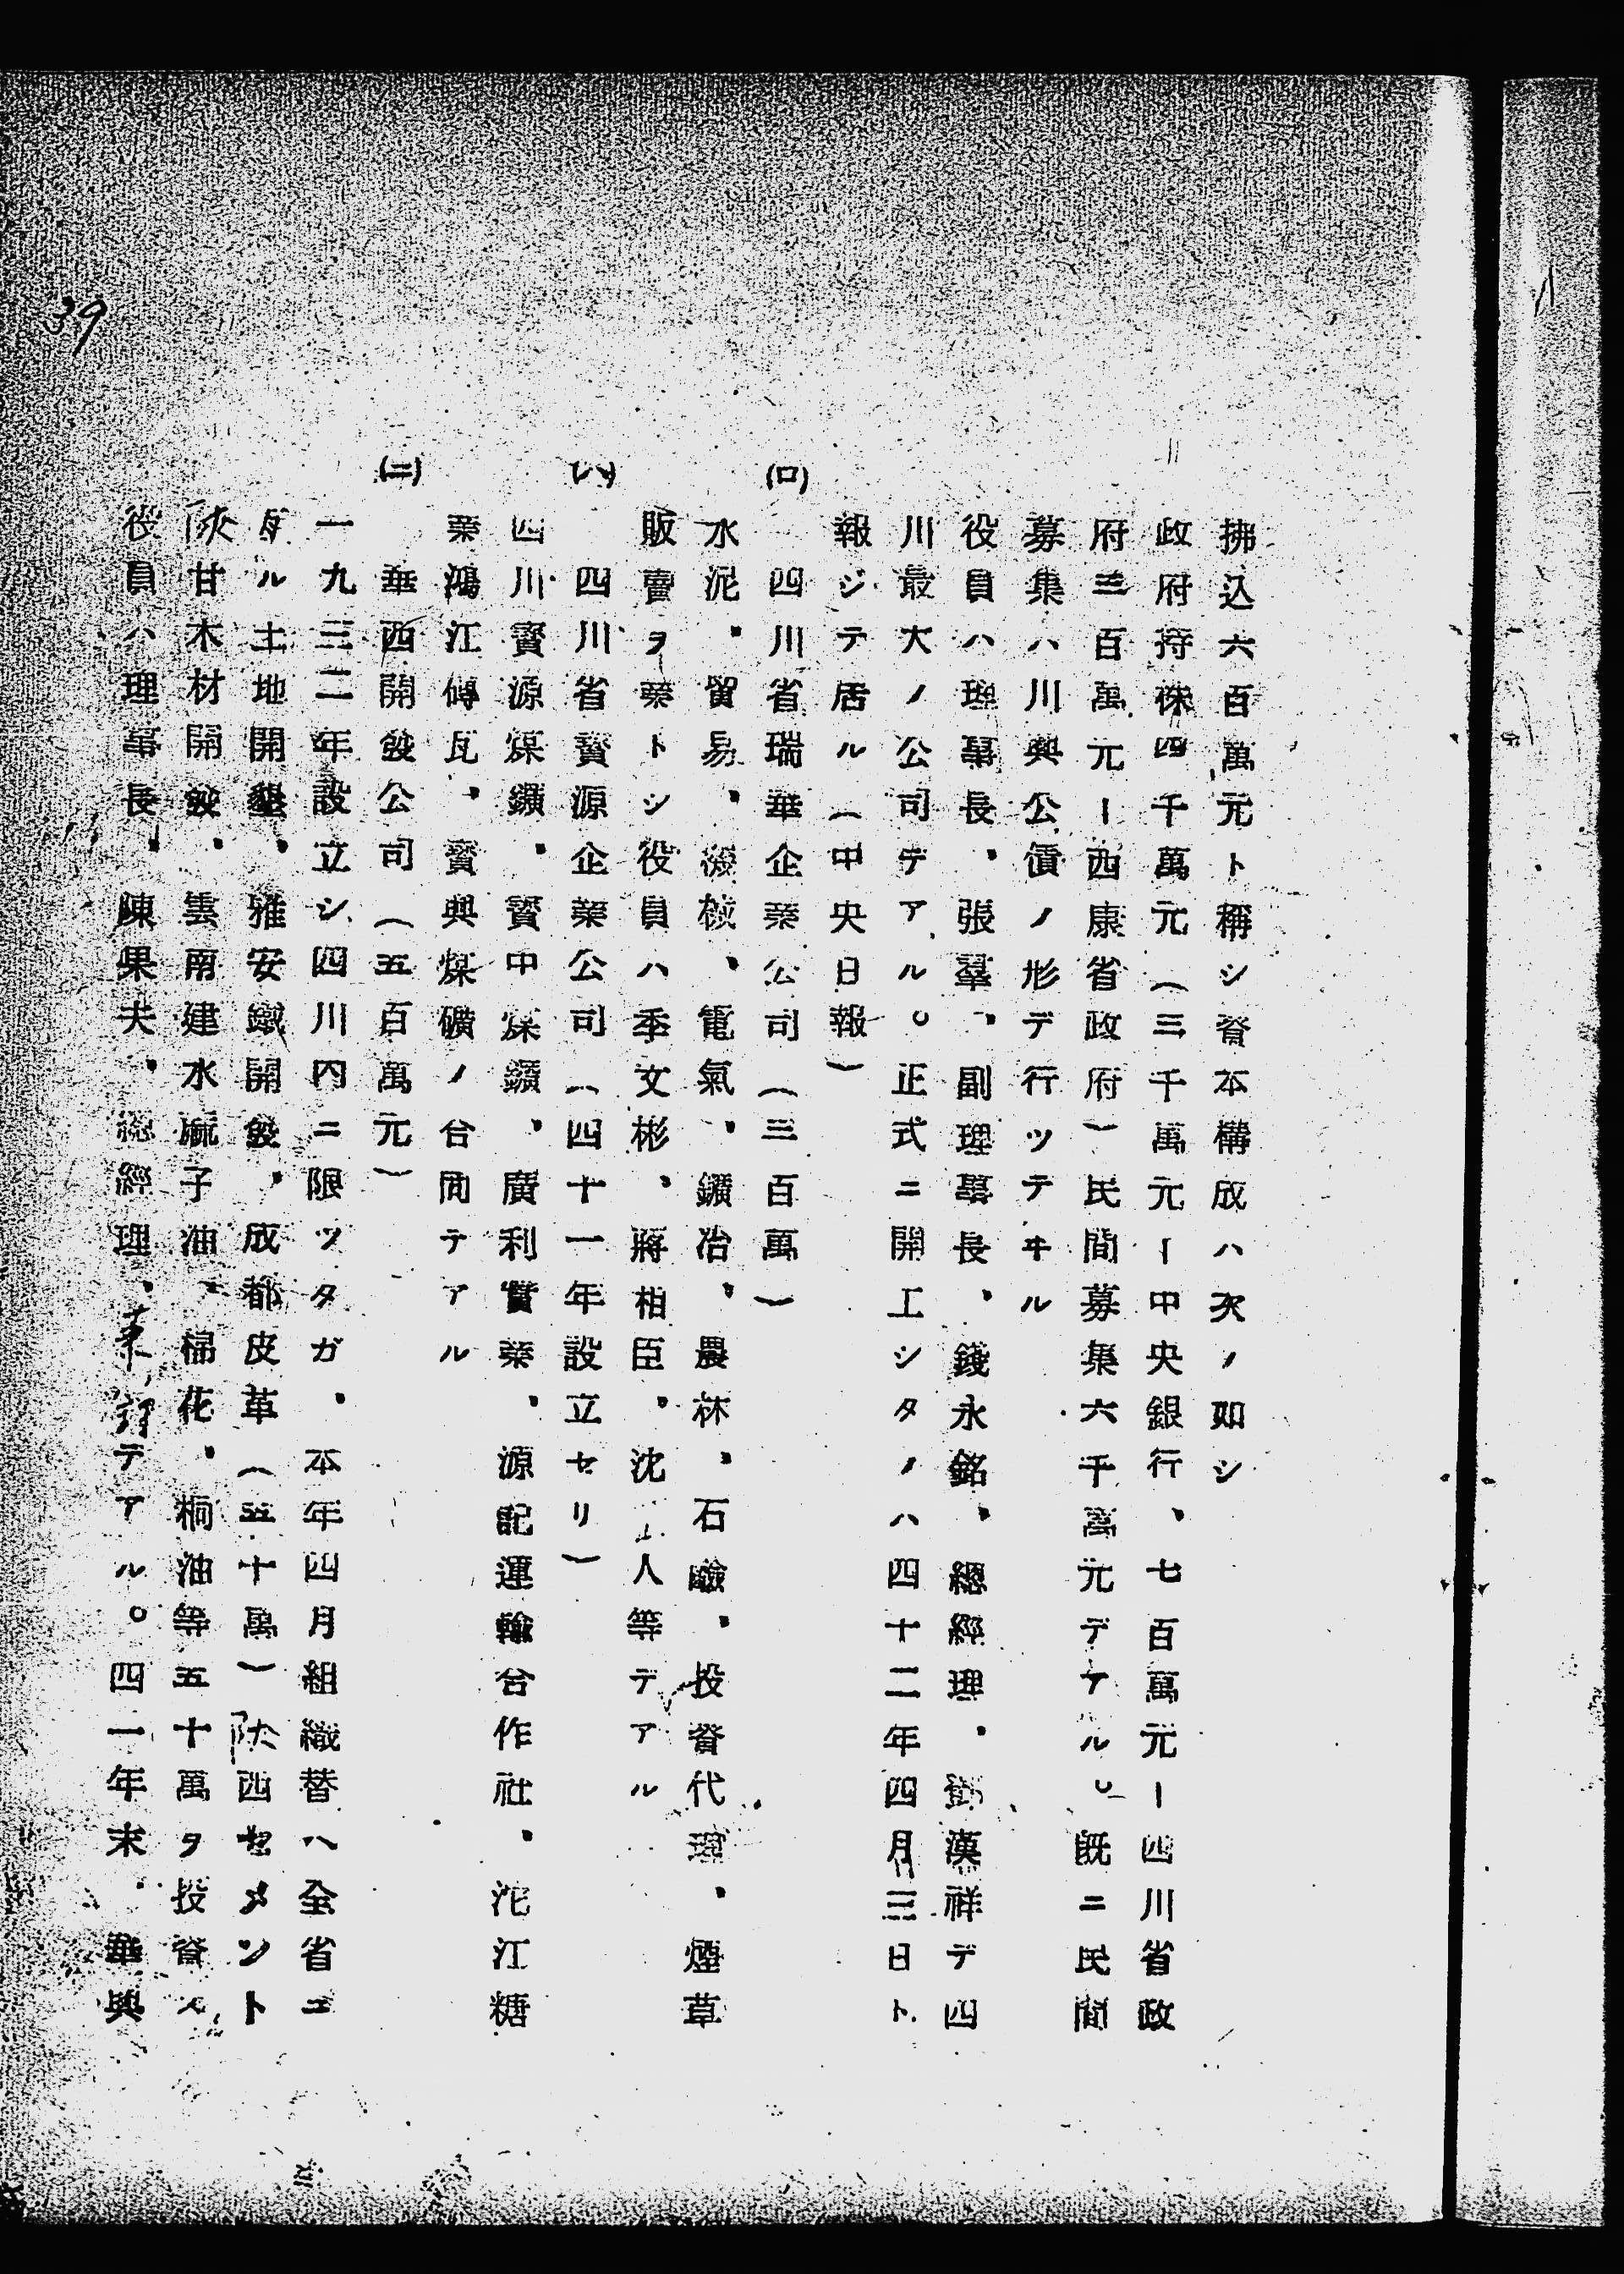 拂込六百萬元ト稱シ資本構成ハ次ノ如シ
政府持株四千萬元(三千萬元ー中央銀行、七百萬元ー四川省政
府三百萬元ー西康省政府)民間募集六千萬元デアル。既ニ民間
募集ハ川興公債ノ形デ行ツテヰル
役員ハ理事長、張羣、副理事長、錢永銘、總經理、鄧漢祥デ四
川最大ノ公司デアル。正式ニ開工シタノハ四十二年四月三日ト
報ジテ居ル(中央日報)
(ロ) 四川省瑞華企業公司(三百萬)
水泥、貿易、機械、電氣、鑛冶、農林、石鹼、投資代理、煙草
販賣ヲ業トシ役員ハ季文彬、將相臣、沈 人等デアル
(ハ) 四川省資源企業公司(四十一年設立セリ)
四川資源煤鑛、資中煤鑛、廣利實業、源記運輸合作社、沱江糖
業鴻江傳瓦、資興煤礦ノ合同テアル
(ニ) 華西開發公司(五百萬元)
一九三二年設立シ四川內ニ限ツタガ、本年四月組織替ヘ全省ニ
亙ル土地開墾、雅安鐵開發、成都皮革(五十萬)陝西セメント
陝甘木材開發、雲南建水蔴子油、棉花、桐油等五十萬ヲ投資ス
役員ハ理事長、陳果夫、總經理、 テアル。四一年末、華興
39